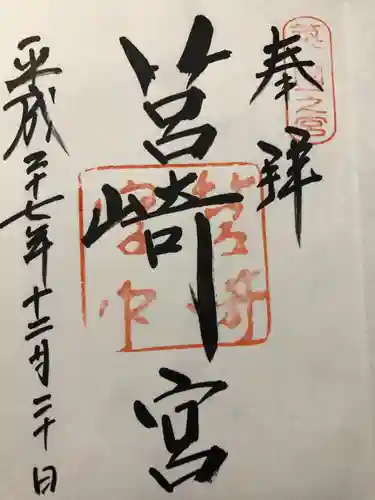 奉拝
筑前一之宮
筥崎宮
平成二十七年十二月二十日